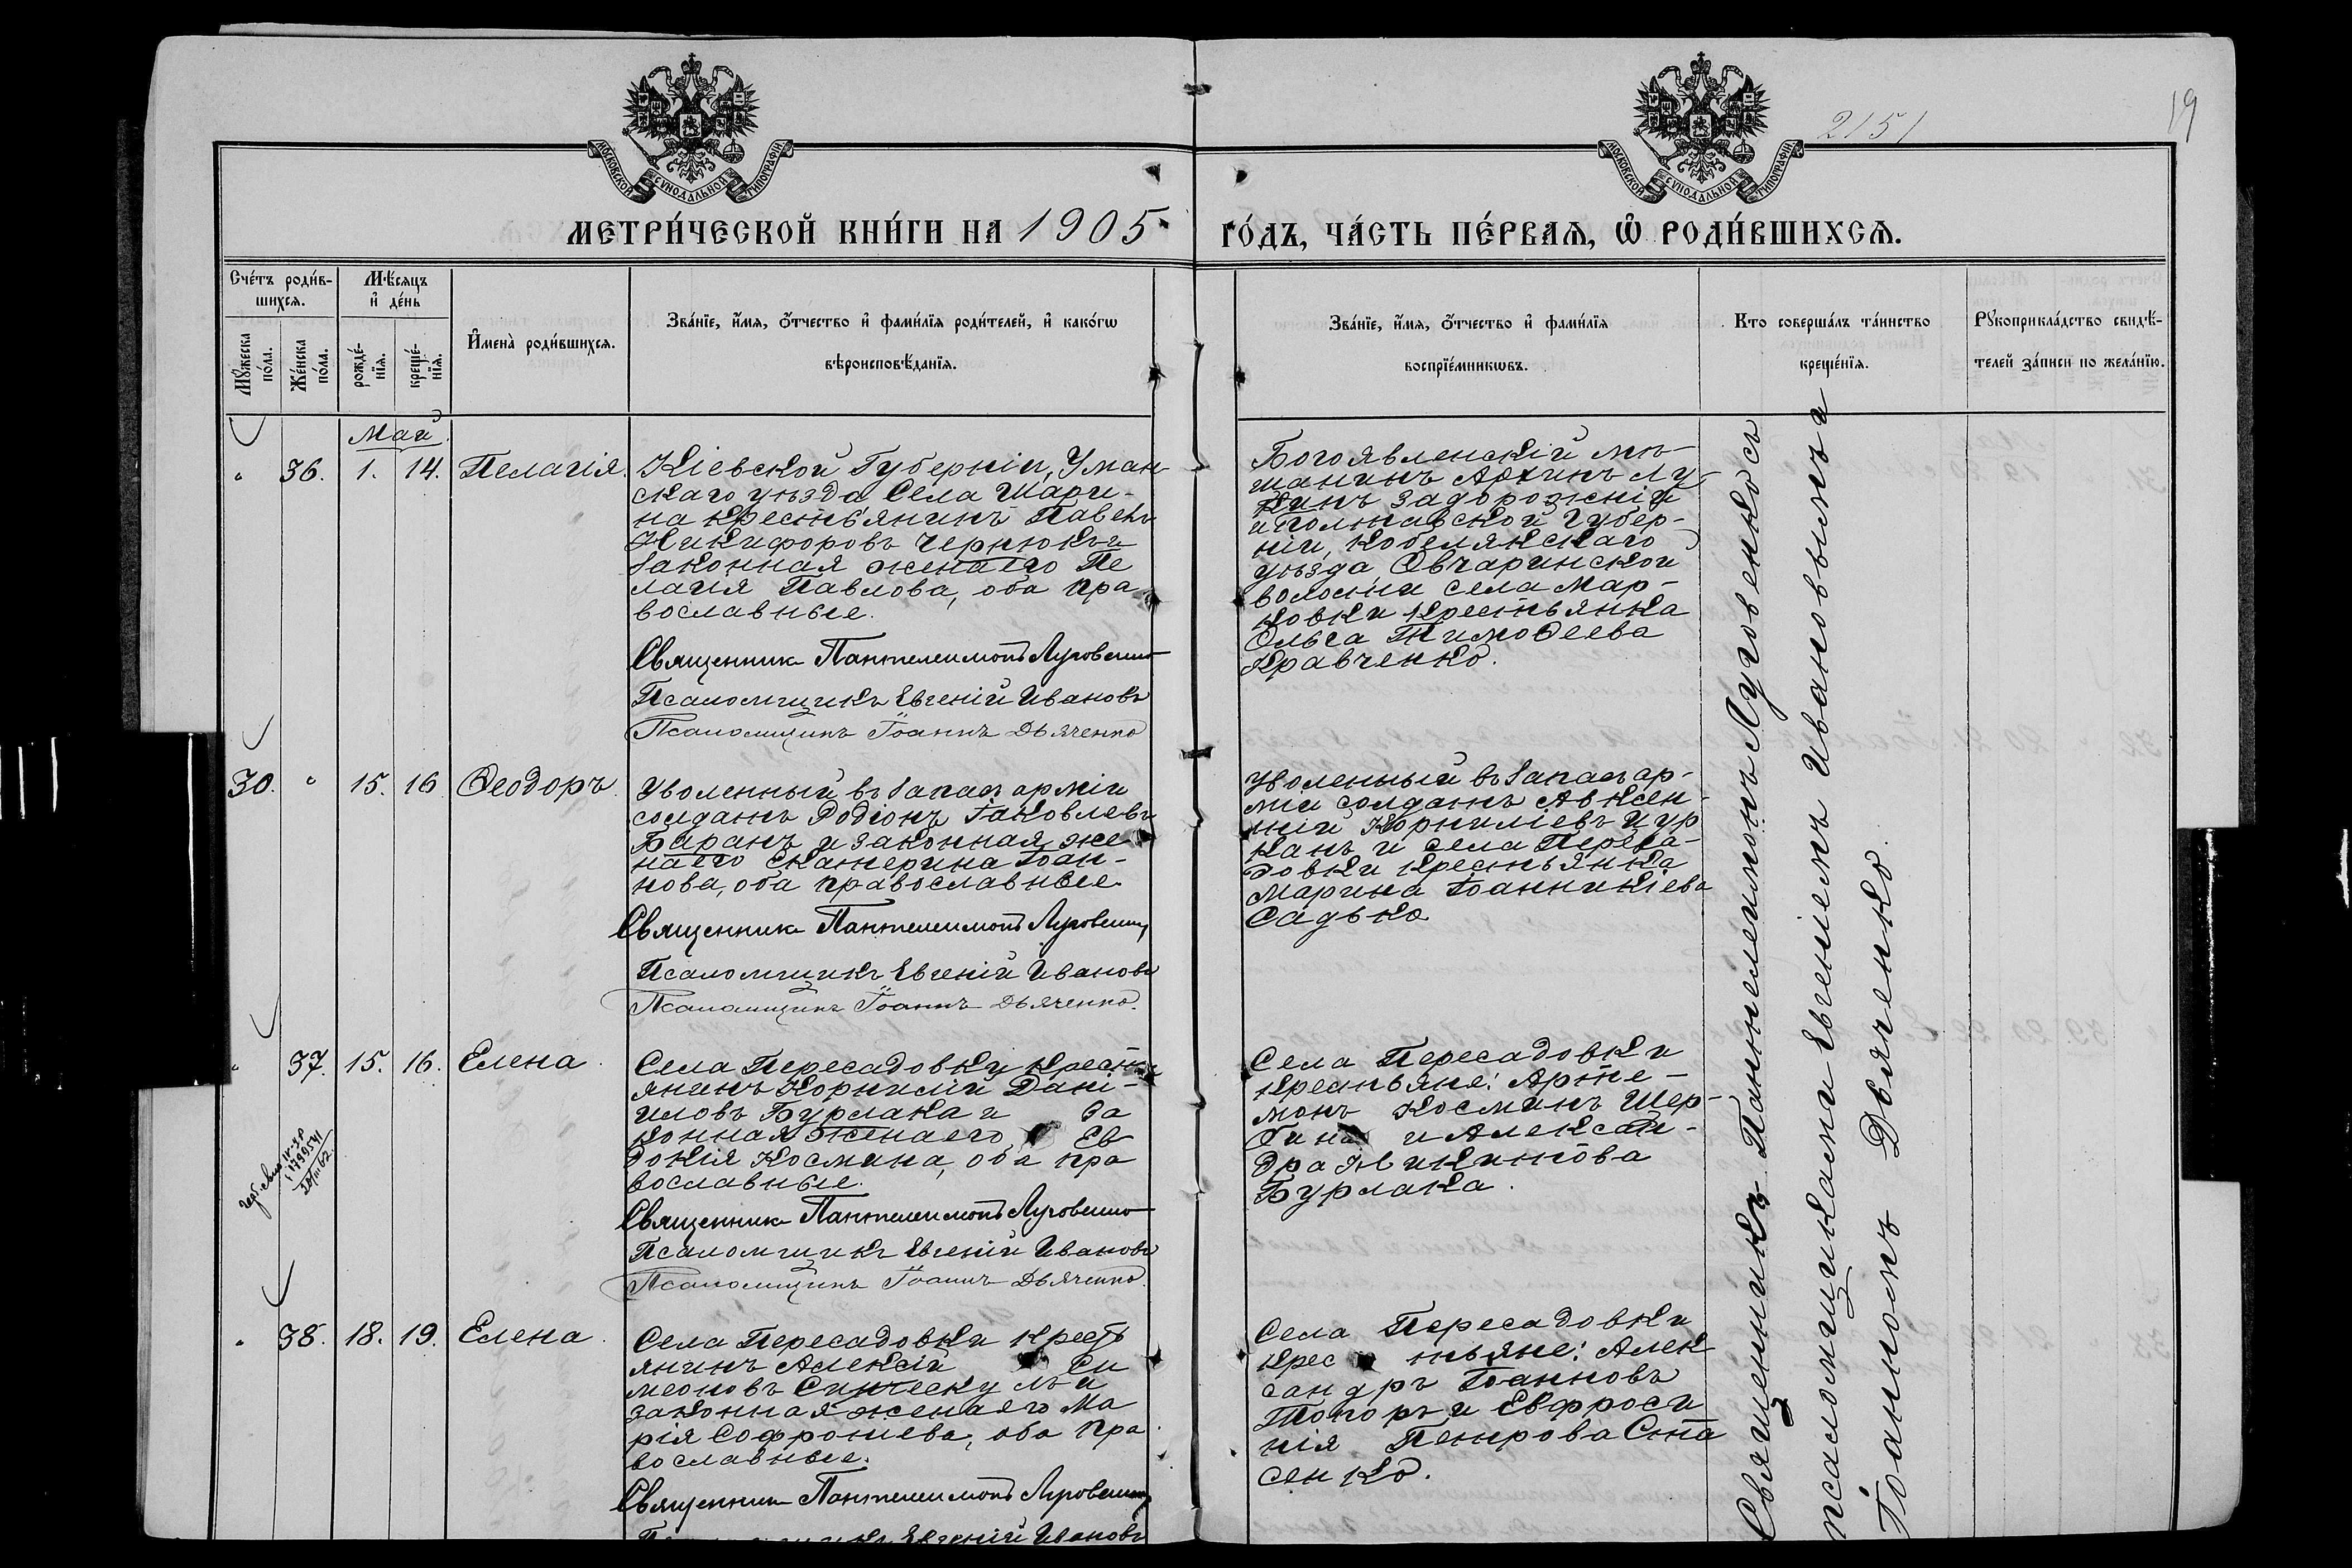 2151
19
МОСКОВСКОЙ СѴНОДАЛЬНОЙ ТИПОГРАФІИ
МОСКОВСКОЙ СѴНОДАЛЬНОЙ ТИПОГРАФІИ
МЕТРИ́ЧЕСКОЙ КНИ́ГИ НА 1905 ГО́ДЪ, ЧА́СТЬ ПЕ́РВАѦ, Ѽ РОДИ́ВШИХСѦ.
Сче́тъ роди́в-
шихсѧ.
Мꙋ́жеска по́ла.
Же́нска по́ла.
Мѣ́сѧцъ
и҆ де́нь
рожде́-
нїѧ.
креще́-
нїѧ.
И҆мена̀ роди́вшихсѧ.
Зва́нїе, и҆́мѧ, ѻ҆́тчество и҆ фами́лїѧ роди́телей, и҆ како́гѡ
вѣроисповѣ́данїѧ.
Зва́нїе, и҆́мѧ, ѻ҆́тчество и҆ фами́лїѧ
воспрїе́мникѡвъ.
Кто соверша́лъ та́инство
креще́нїѧ.
Рꙋкоприкла́дство свидѣ́-
телей за́писи по жела́нїю.
Май
" 36. 1. 14. Пелагія.
Кіевской Губерніи, Уман-
скаго уѣзда Села Шари-
на крестьянинъ Павелъ
Никифоровъ Чернюкъ и
законная жена его Пе
лагия Павлова, оба пра
вославные.
Священникъ Пантелеимонъ Луговенко
Псаломщикъ Евгеній Ивановъ
Псаломщикъ Іоаннъ Дьяченко
Богоявленскій мѣ-
щанинъ Архипъ Лу
кинъ Задорожній
и Полтавской Губер-
ніи, Кобелякскаго
уѣзда Овчаринской
волости села Мар-
ковки крестьянка
Ольга Тимоѳеева
Кравченко.
30. " 15. 16 Ѳеодоръ
Уволенный въ запасъ арміи
солдатъ Родіонъ Іаковлевъ
Баранъ и законная же
на его Екатерина Іоан-
нова, оба православные.
Священникъ Пантелеимонъ Луговенко
Псаломщикъ Евгеній Ивановъ
Псаломщикъ Іоаннъ Дьяченко.
Уволенный въ запасъ ар-
міи солдатъ Авксен-
тій Корнилиевъ Цур
канъ и села Переса-
довки крестьянка
Марина Іоанникіева
Садько
" 37. 15. 16. Елена
Села Пересадовки крестъ
янинъ Корнилій Дані-
иловъ Бурлака и за
конная жена его Ев
докія Космина, оба пра
вославные.
Священникъ Пантелеимонъ Луговенко
Псаломщикъ Евгеній Ивановъ
Псаломщикъ Іоаннъ Дьяченко.
Села Пересадовки
крестьяне: Арте-
монъ Косминъ Щер-
бина и Алексан-
дра Никитова
Бурлака.
" 38. 18. 19. Елена
Села Пересадовки кресть
янинъ Алексій Си
меоновъ и
законная жена его Ма
рія Софрониева, оба Пра
вославные.
Священникъ Пантелеимонъ Луговенко
Евгеній Ивановъ
Села Пересадовки
крестьяне: Алек
сандръ Іоанновъ
Топоръ и Евфроси
нія Петрова Ста
сенко.
Священникъ Пантелеимонъ Луговенко съ
псаломщиками Евгеніемъ Ивановымъ и
Іоанномъ Дьяченко.